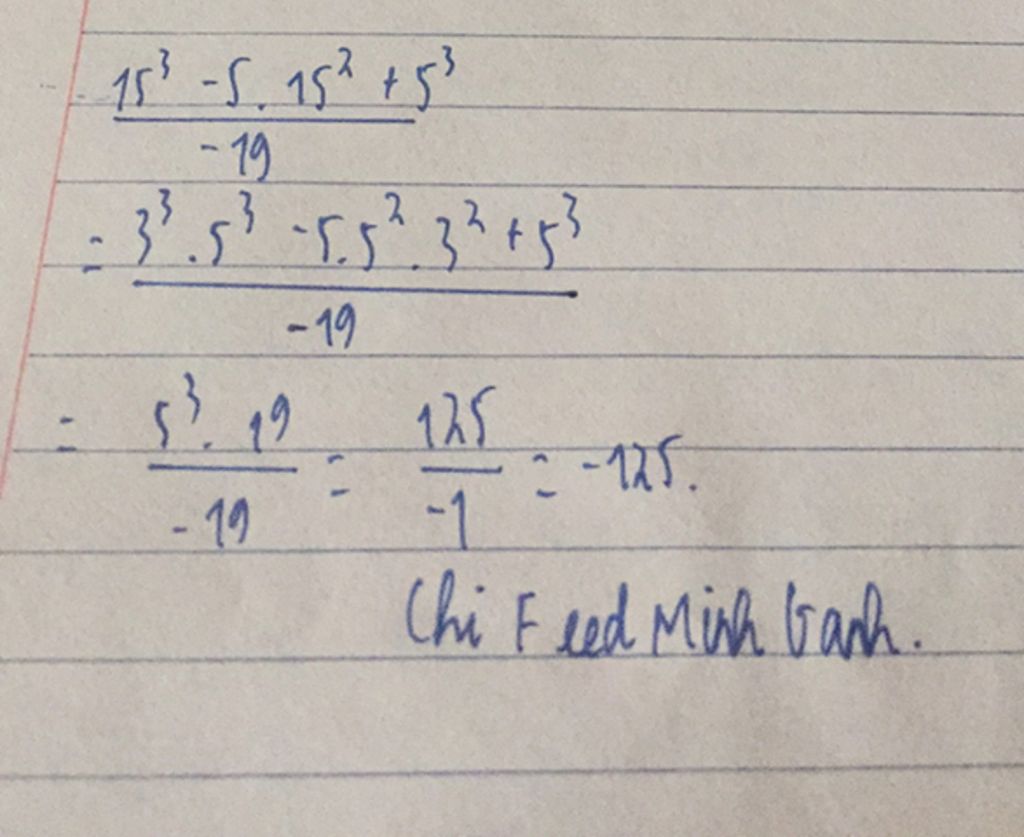 15³ - 5. 15² + 5³
-19
= 3³ . 5³ - 5. 5² . 3² + 5³
-19
= 5³. 19 = 125 = -125.
-19 -1
Chi Feed Minh Ganh.